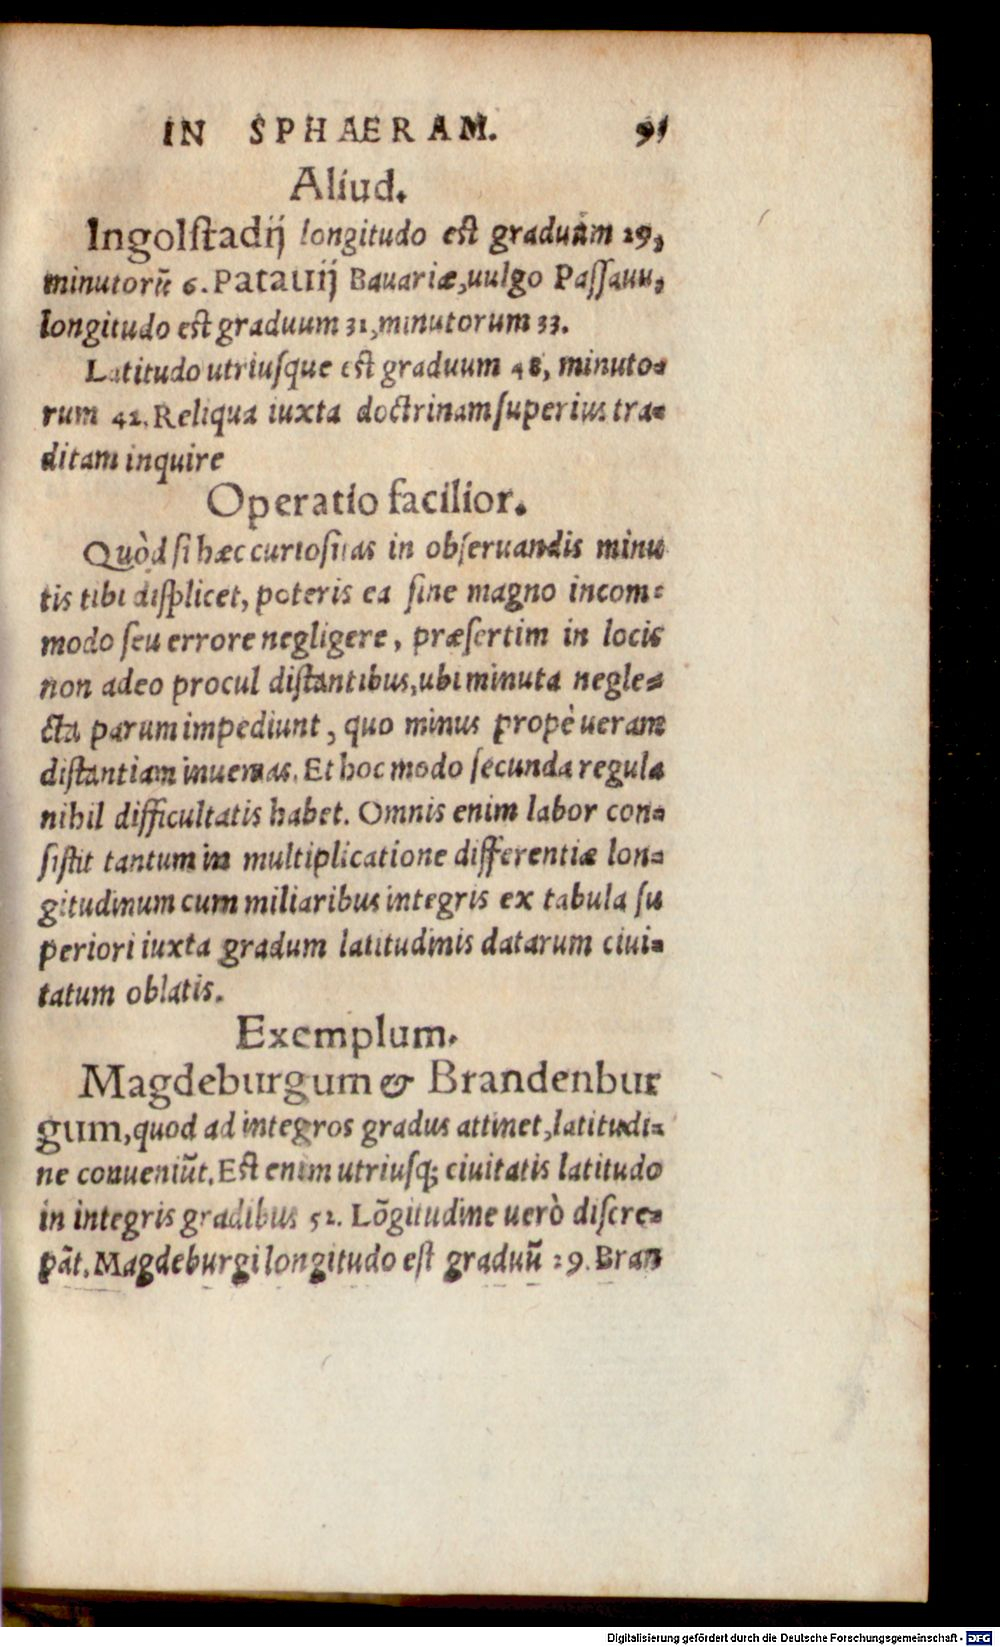 IN SPHAERAM. 91
Aliud.
Ingolſtadij longitudo est graduum 29,
minutorũ 6. Patauij Bauariæ, uulgo Paſſauu,
longitudo est graduum 31, minutorum 33.
Latitudo utriuſque est graduum 48, minuto=
rum 42. Reliqua iuxta doctrinam ſuperius tra=
ditam inquire
Operatio facilior.
Quòd ſi hæc curioſitas in obſeruandis minu
tis tibi diſplicet, poteris ea ſine magno incom=
modo ſeu errore negligere, præſertim in locis
non adeo procul diſtantibus, ubi minuta negle=
cta parum impediunt, quo minus propè ueram
diſtantiam inuenias. Et hoc modo ſecunda regula
nihil difficultatis habet. Omnis enim labor con=
ſiſtit tantum in multiplicatione differentiæ lon=
gitudinum cum miliaribus integris ex tabula ſu
periori iuxta gradum latitudinis datarum ciui=
tatum oblatis.
Exemplum.
Magdeburgum & Brandenbur
gum, quod ad integros gradus attinet, latitudi=
ne conueniũt. Est enim utriuſq; ciuitatis latitudo
in integris gradibus 52. Lõgitudine uerò diſcre=
pãt. Magdeburgi longitudo eſt graduũ 29. Bran
Digitalisierung gefördert durch die Deutsche Forschungsgemeinschaft - DFG